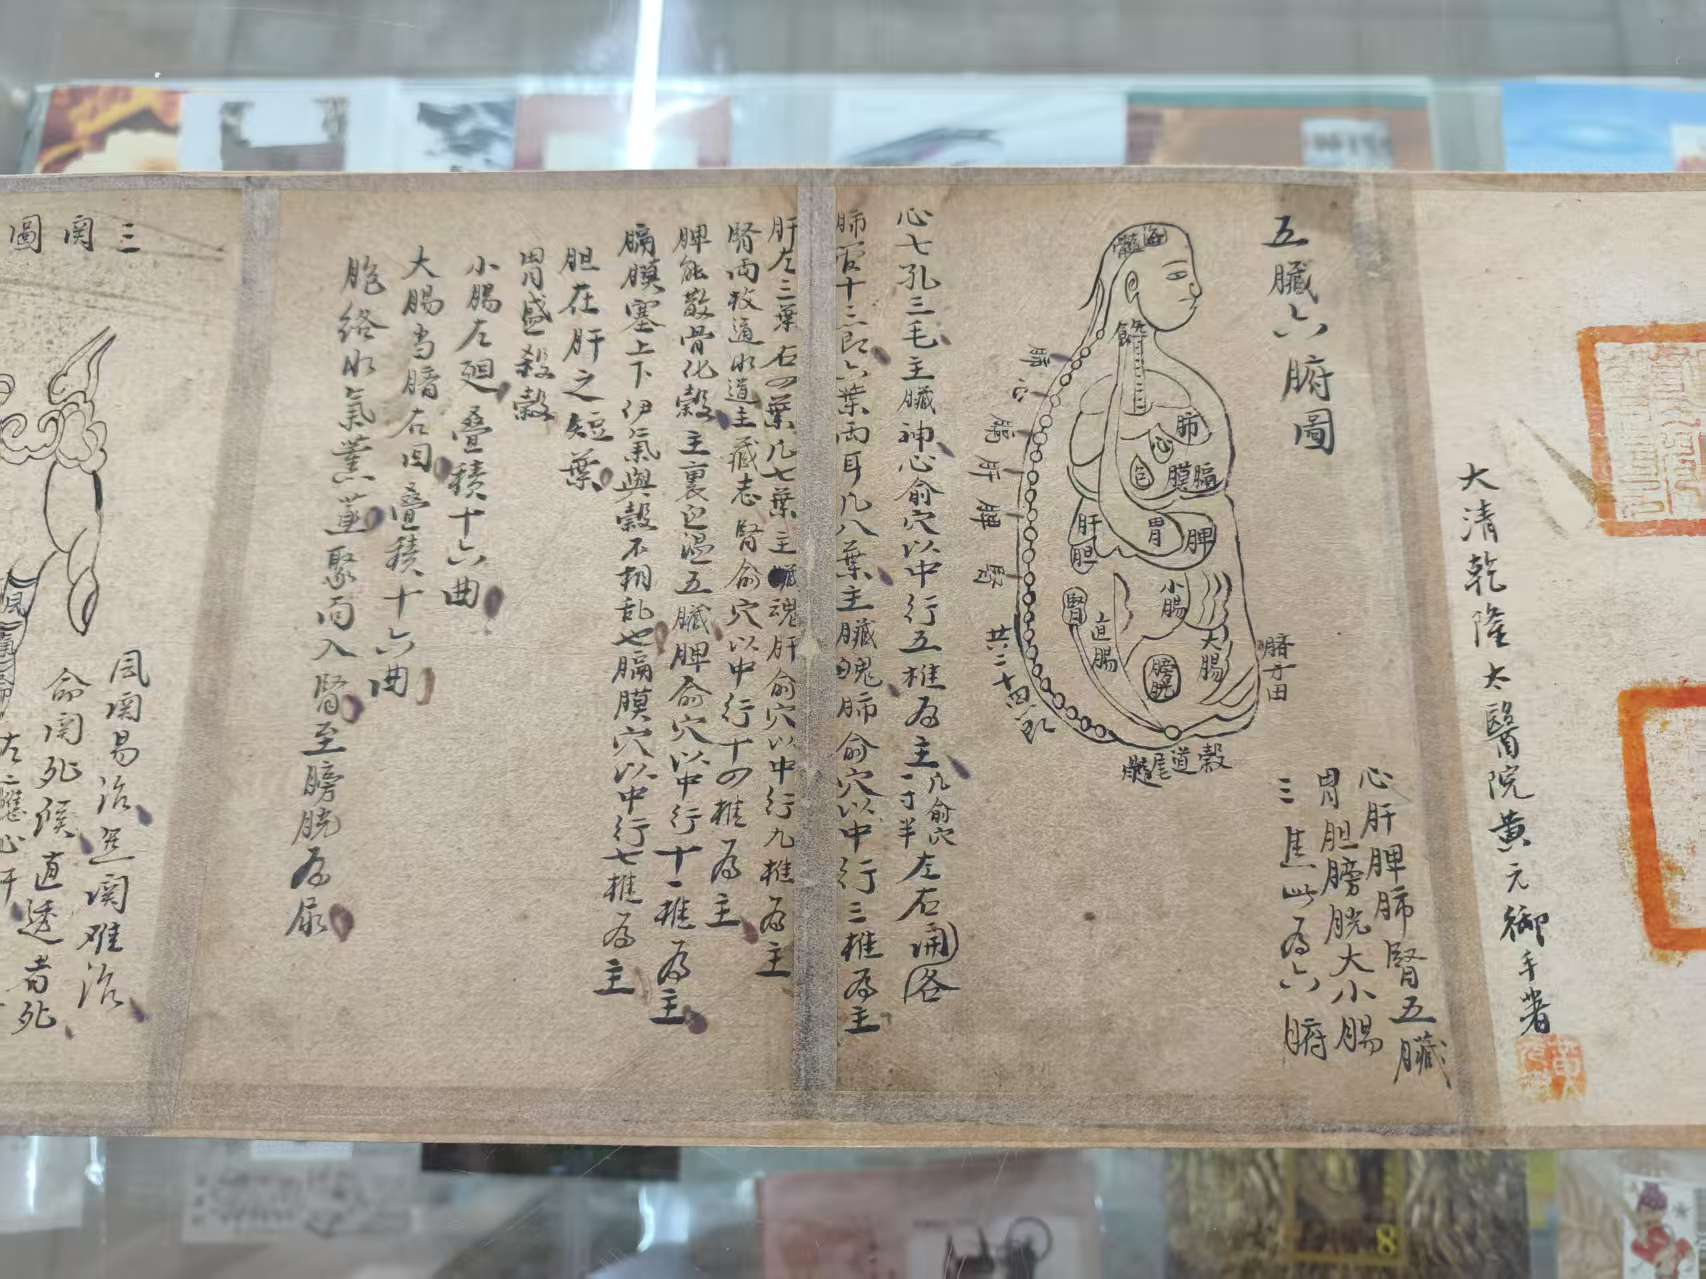 大清乾隆太醫院黄元御手著
五臟六腑圖
心肝脾肺腎五臟
胃胆膀胱大小腸
三焦此為六腑
髓海
肺
心
膈膜
肝
胆
胃
脾
腎
小腸
直腸
大腸
膀胱
臍
丹田
穀道
尾
肺
心
肝
脾
腎
共二十四
心七孔三毛主臟神心俞穴以中行五椎為主凡俞穴左右開各一寸半
肺管十二節六葉両耳凡八葉主臟魄肺俞穴以中行三椎為主
肝左三葉右四葉凡七葉主臟魂肝俞穴以中行九椎為主
腎両枚通水道主藏志腎俞穴以中行十四椎為主
脾能散骨化穀主裏正温五臟脾俞穴以中行十一椎為主
膈膜塞上下伊氣與穀不相乱也膈膜穴以中行七椎為主
胆在肝之短葉
胃盛殺穀
小腸左廻疊積十六曲
大腸当臍右回疊積十六曲
胞絡水氣薰蒸聚而入腎至膀胱為尿
三関圖
風関易治氣関难治
命関死候直透者死